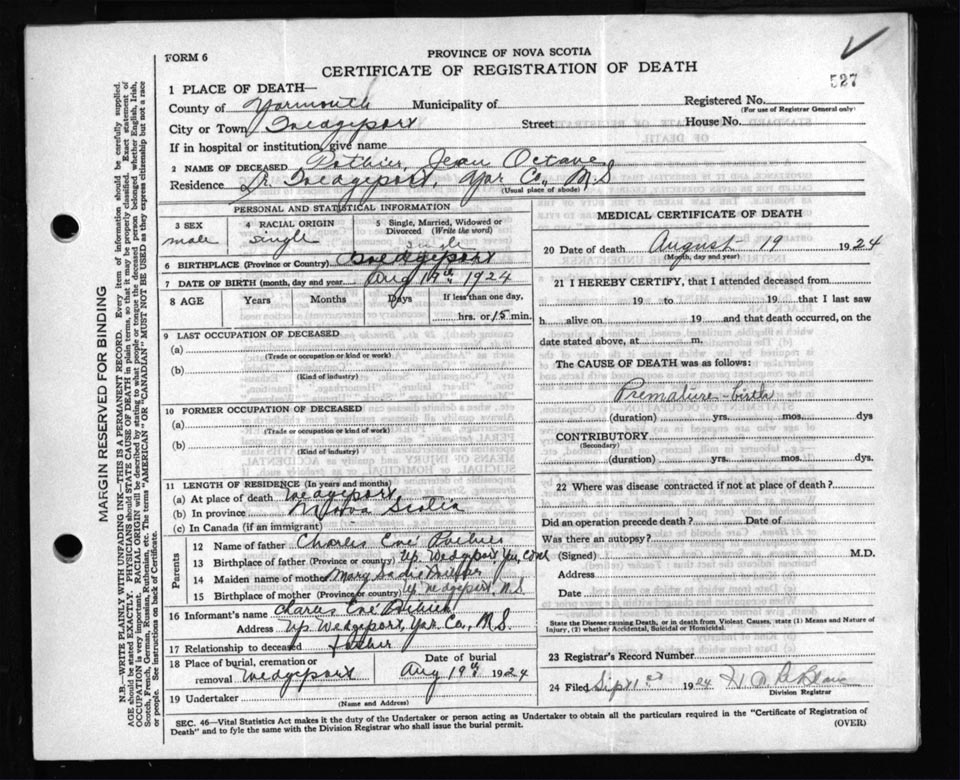 FORM 6
PROVINCE OF NOVA SCOTIA
CERTIFICATE OF REGISTRATION OF DEATH
527
1 PLACE OF DEATH—
County of Yarmouth Municipality of
Registered No.
(For use of Registrar General only)
City or Town Wedgeport Street House No.
If in hospital or institution, give name
2 NAME OF DECEASED Pothier, Jean Octave
Residence Wedgeport, Yar Co., N.S
(Usual place of abode)
PERSONAL AND STATISTICAL INFORMATION
3 SEX
male
4 RACIAL ORIGIN
single
5 Single, Married, Widowed or Divorced (Write the word)
single
6 BIRTHPLACE (Province or Country) Wedgeport
7 DATE OF BIRTH (month, day and year) Aug 1924
8 AGE Years Months Days If less than one day,
hrs. or 15 min.
9 LAST OCCUPATION OF DECEASED
(a)
(Trade or occupation or kind or work)
(b)
(Kind of industry)
10 FORMER OCCUPATION OF DECEASED
(a)
(Trade or occupation or kind or work)
(b)
(Kind of industry)
11 LENGTH OF RESIDENCE (In years and months)
(a) At place of death Wedgeport
(b) In province Nova Scotia
(c) In Canada (if an immigrant)
Parents
12 Name of father Charles Pothier
13 Birthplace of father (Province or country) Up. Wedgeport Yar. Co N.S
14 Maiden name of mother Mary
15 Birthplace of mother (Province or country) Up Wedgeport, N.S.
16 Informant's name Charles Pothier
Address Up Wedgeport, Yar. Co., N.S.
17 Relationship to deceased father
18 Place of burial, cremation or removal Wedgeport
Date of burial
Aug 19th 1924
19 Undertaker
(Name and Address)
MEDICAL CERTIFICATE OF DEATH
20 Date of death August 19 1924
(Month, day and year)
21 I HEREBY CERTIFY, that I attended deceased from
19 to 19 that I last saw
h alive on 19 and that death occurred, on
date stated above, at m.
The CAUSE OF DEATH was as follows:
Premature birth
(duration) yrs. mos. dys
CONTRIBUTORY
(Secondary)
(duration) yrs. mos. dys.
22 Where was disease contracted if not at place of death?
Did an operation precede death? Date of
Was there an autopsy?
(Signed) M.D.
Address
Date
State the Disease causing Death, or in death from Violent Causes, state (1) Means and Nature of
Injury, (2) whether Accidental, Suicidal or Homicidal.
23 Registrar's Record Number
24 Filed Sept 1st 1924
Division Registrar
SEC. 46—Vital Statistics Act makes it the duty of the Undertaker or person acting as Undertaker to obtain all the particulars required in the "Certificate of Registration of
Death" and to fyle the same with the Division Registrar who shall issue the burial permit. (OVER)
MARGIN RESERVED FOR BINDING
N.B.—WRITE PLAINLY WITH UNFADING INK—THIS IS A PERMANENT RECORD. Every item of information should be carefully supplied.
AGE should be stated EXACTLY. PHYSICIANS should STATE CAUSE OF DEATH in plain terms, so that it may be properly classified. Exact statement of
OCCUPATION is very important. RACIAL ORIGIN will be described by stating to what people or tongue the deceased person belonged whether English, Irish,
Scotch, French, German, Russian, Ruthenian, etc. The terms "AMERICAN" OR "CANADIAN" MUST NOT BE USED as they express citizenship but not a race
or people. See instructions on back of Certificate.